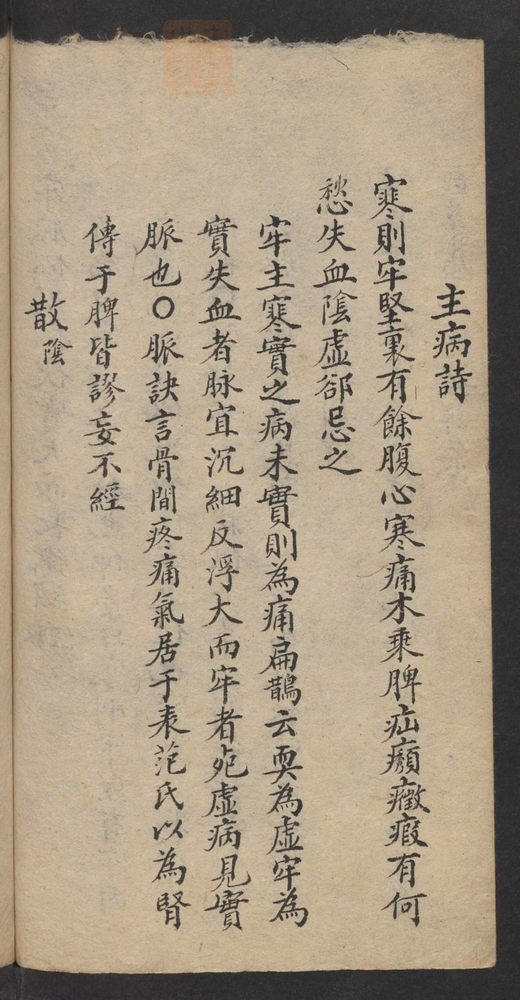 主病詩
寒則牢堅裏有餘腹心寒痛木乘脾疝癩癥瘕有何
愁失血陰虛郤忌之
牢主寒實之病木實則為痛扁鵲云耎為虛牢為
實失血者脉宜沉細反浮大而牢者死虛病見實
脈也○脈訣言骨間疼痛氣居于表范氏以為腎
傳于脾皆謬妄不經
散陰